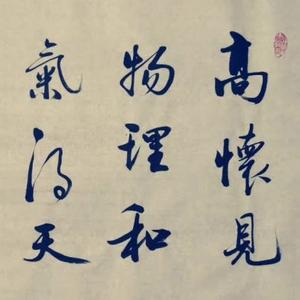 高懷見
物理和
氣得天